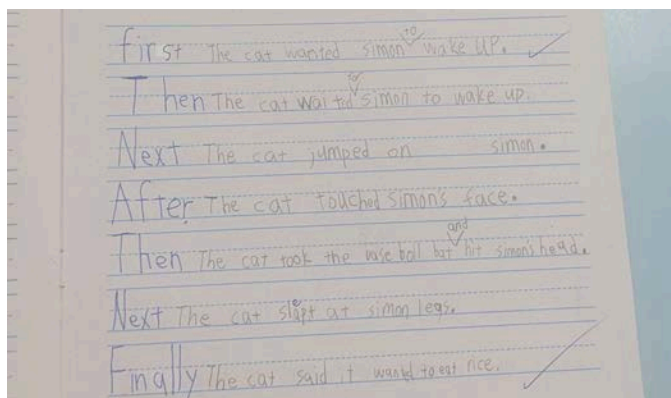 first The cat wanted simon to wake UP.
Then The cat waited for simon to wake up.
Next The cat jumped on simon.
After The cat touched simon's face.
Then The cat took the base ball bat and hit simon's head.
Next The cat slept at simon legs.
Finally The cat said it wanted to eat rice.